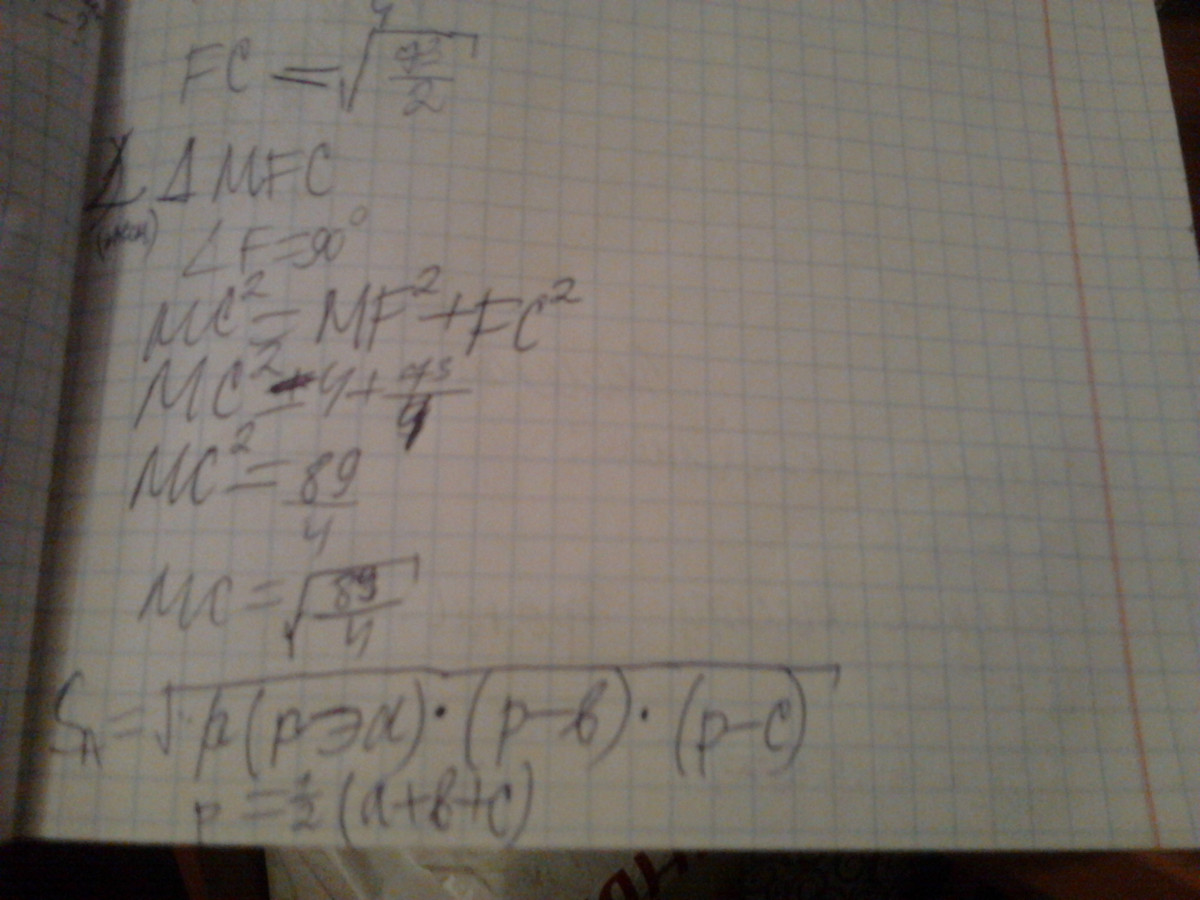 FC = √
Δ MFC
∠ F = 90°
MC² = MF² + FC²
MC² = 4 + 73/4
MC² = 89/4
MC = √89/4
S_Δ = √p(p-a) · (p-в) · (p-c)
p = 1/2 (a+в+c)